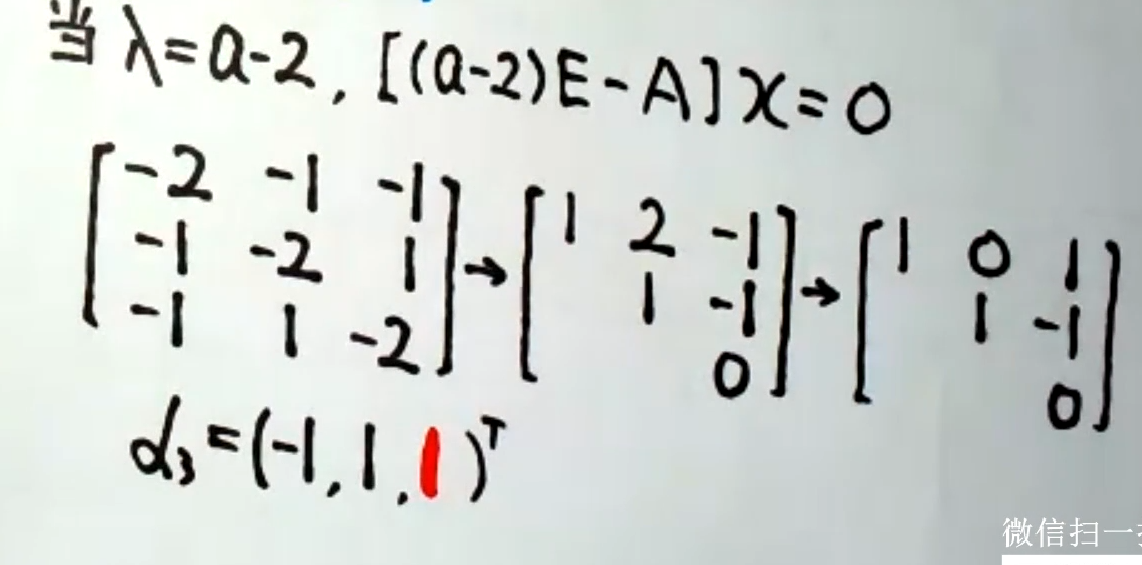 当 λ=a-2, [(a-2)E-A]x=0
[-2 -1 -1; -1 -2 1; -1 1 -2] → [1 2 -1; 1 -1; 0] → [1 0 1; 1 -1; 0]
α₃=(-1,1,1)ᵀ
微信扫一